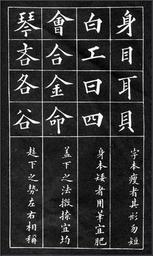 身目耳貝
白工曰四
會合金命
琴吝各谷
字本瘦者其形勿短
身本矮者用筆宜肥
蓋下之法撇捺宜均
趂下之勢左右相稱